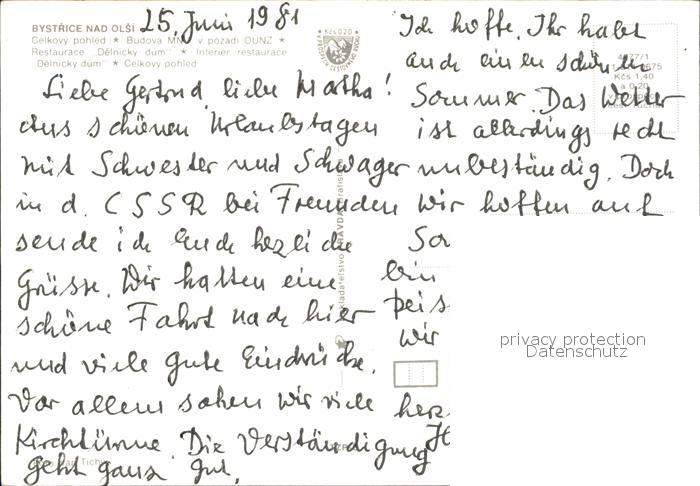 BYSTŘICE NAD OLŠÍ
Celkový pohled ★ Budova MNV v pozadí OÚNZ ★
Restaurace „Dělnický dům" ★ Interiér restaurace
„Dělnický dům" ★ Celkový pohled
25. Juni 1981
Kčs 0,20
Liebe Gertrud, liebe Martha!
Aus schönen Urlaubstagen
mit Schwester und Schwager
in d. CSSR bei Freunden
sende ich Euch herzliche
Grüsse. Wir hatten eine
schöne Fahrt nach hier
und viele gute Eindrücke.
Vor allem sahen wir viele
Kirchtürme. Die Verständigung
geht ganz gut.
Ich hoffe, Ihr habt
auch einen schönen
Sommer. Das Wetter
ist allerdings recht
unbeständig. Doch
wir hoffen auf
So
bin
peis
Wir
herz
H
Kčs 1,40
a 0,20
privacy protection
Datenschutz